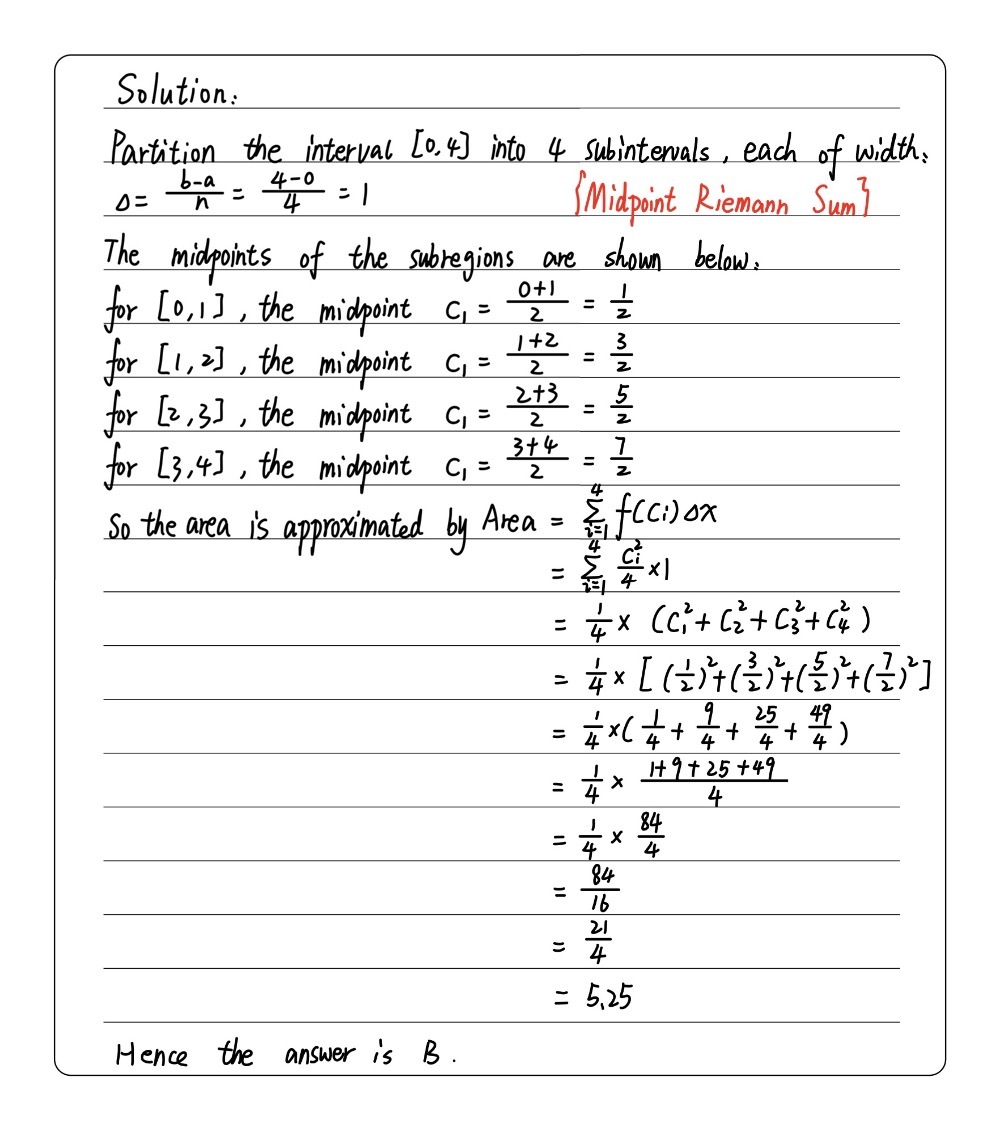 Solution:
Partition the interval [0,4] into 4 subintervals, each of width:
Δ= \frac{b-a}{n} = \frac{4-0}{4} = 1 {Midpoint Riemann Sum}
The midpoints of the subregions are shown below:
for [0,1], the midpoint C₁ = \frac{0+1}{2} = \frac{1}{2}
for [1,2], the midpoint C₁ = \frac{1+2}{2} = \frac{3}{2}
for [2,3], the midpoint C₁ = \frac{2+3}{2} = \frac{5}{2}
for [3,4], the midpoint C₁ = \frac{3+4}{2} = \frac{7}{2}
So the area is approximated by Area = \sum_{i=1}^{4} f(Ci) Δx
= \sum_{i=1}^{4} \frac{C_i^2}{4} ×1
= \frac{1}{4} × (C₁² + C₂² + C₃² + C₄²)
= \frac{1}{4} × [(\frac{1}{2})²+(\frac{3}{2})²+(\frac{5}{2})²+(\frac{7}{2})²]
= \frac{1}{4} ×(\frac{1}{4} + \frac{9}{4} + \frac{25}{4} + \frac{49}{4})
= \frac{1}{4} × \frac{1+9+25+49}{4}
= \frac{1}{4} × \frac{84}{4}
= \frac{84}{16}
= \frac{21}{4}
= 5.25
Hence the answer is B.